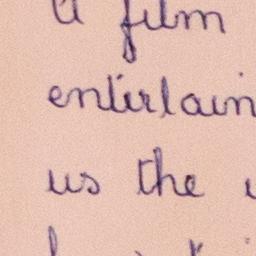 a film
entertain
us the